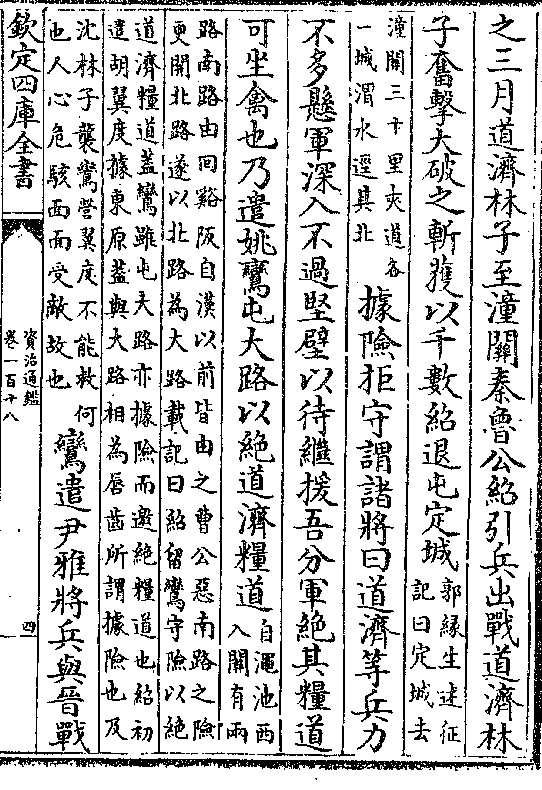 之三月道濟林子至潼關秦魯公紹引兵出戰道濟林
子奮擊大破之斬獲以千數紹退屯定城郭縁生述征
記曰定城去
潼關三十里夾道各
一城渭水逕其北據險拒守謂諸將曰道濟等兵力
不多懸軍深入不過堅壁以待繼援吾分軍絶其糧道
可坐禽也乃遣姚鸞屯大路以絶道濟糧道自澠池西
入關有兩
路南路由回谿阪自漢以前皆由之曹公惡南路之險
更開北路遂以北路為大路載記曰紹留鸞守險以絶
道濟糧道蓋鸞雖屯大路亦據險而邀絶糧道也紹初
遣胡翼度據東原蓋與大路相為唇齒所謂據險也及
沈林子襲鸞營翼度不能救何
也人心危駭面面受敵故也鸞遣尹雅將兵與晉戰
欽定四庫全書
資治通鑑
卷一百十八
四